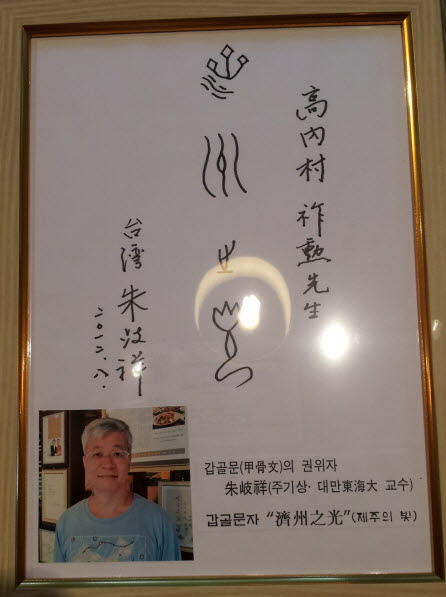 高內村 祚勳先生
濟州之光
台灣 朱歧祥
2012.8.
갑골문(甲骨文)의 권위자
朱岐祥(주기상· 대만東海大 교수)
갑골문자 “濟州之光”(제주의 빛)